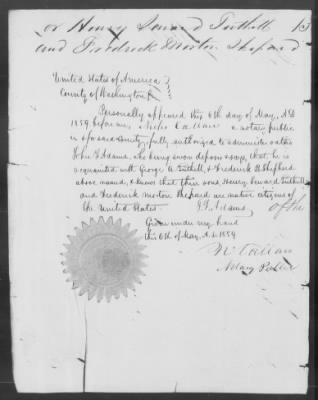 or Henry Seward Tuthill 13
and Frederick Morton Shepard
United States of America
County of Washington
Personally appeared this 6th day of May, A.D.
1859 before me, Nichs Callan a notary public
in & for said county, fully authorized to administer oaths
John J Adams, who being sworn deposes & says, that he is
acquainted with George A Tuthill, & Frederick H Shepherd
above named, & knows that their sons, Henry Seward Tuthill
and Frederick Morton Shepard are native citizens of
the United States J J Adams of the
Given under my hand
this 6th of May, A.D. 1859
N Callan
Notary Public